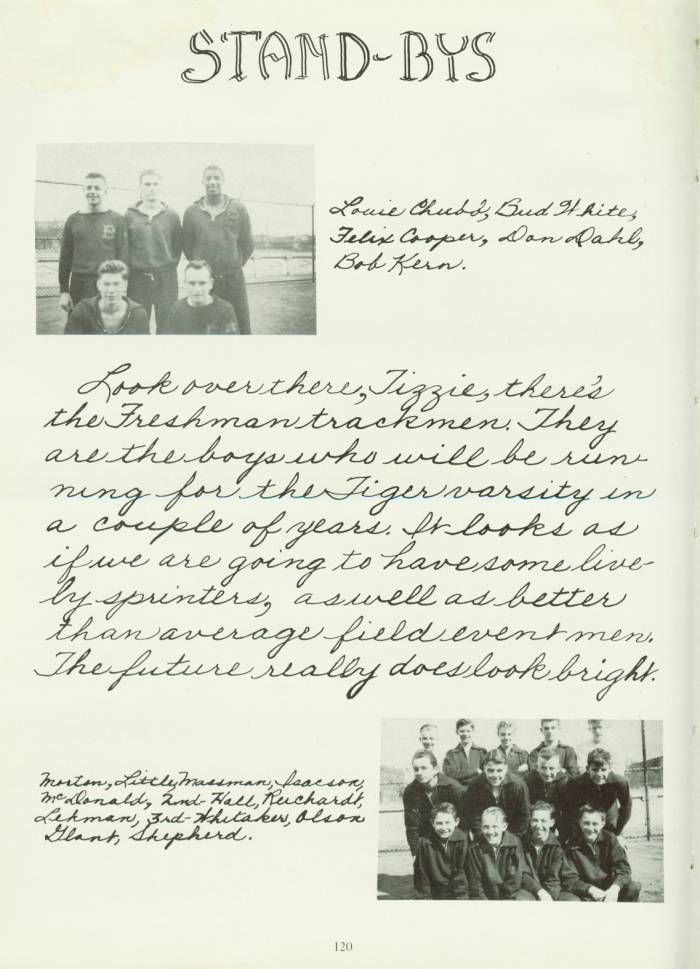 STAND-BYS
Louie Chubb, Bud White,
Felix Cooper, Don Dahl,
Bob Kern.
Look over there, Tizzie, there's
the Freshman trackmen. They
are the boys who will be run-
ning for the Tiger varsity in
a couple of years. It looks as
if we are going to have some live-
ly sprinters, as well as better
than average field event men.
The future really does look bright.
Morton, Little, Massman, Isacson,
McDonald, 2nd-Hall, Reichardt,
Lehman, 3rd-Whitaker, Olson
Glant, Shepherd.
120